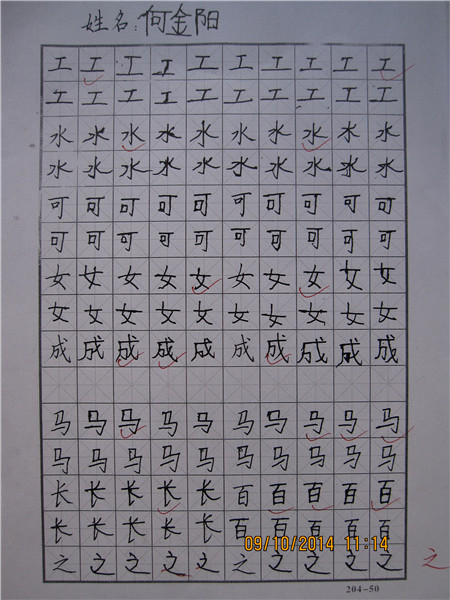 姓名:何金阳
工工工工工工工工工工
工工工工工工工工工工
水水水水水水水水水水
水水水水水水水水水水
可可可可可可可可可可
可可可可可可可可可可
女女女女女女女女女女
女女女女女女女女女女
成成成成成成成成成成
马马马马马马马马马马
马马马马马马马马马马
长长长长长百百百百百
长长长长长百百百百百
之之之之之之之之之之
之
09/10/2014 11:14
204-50